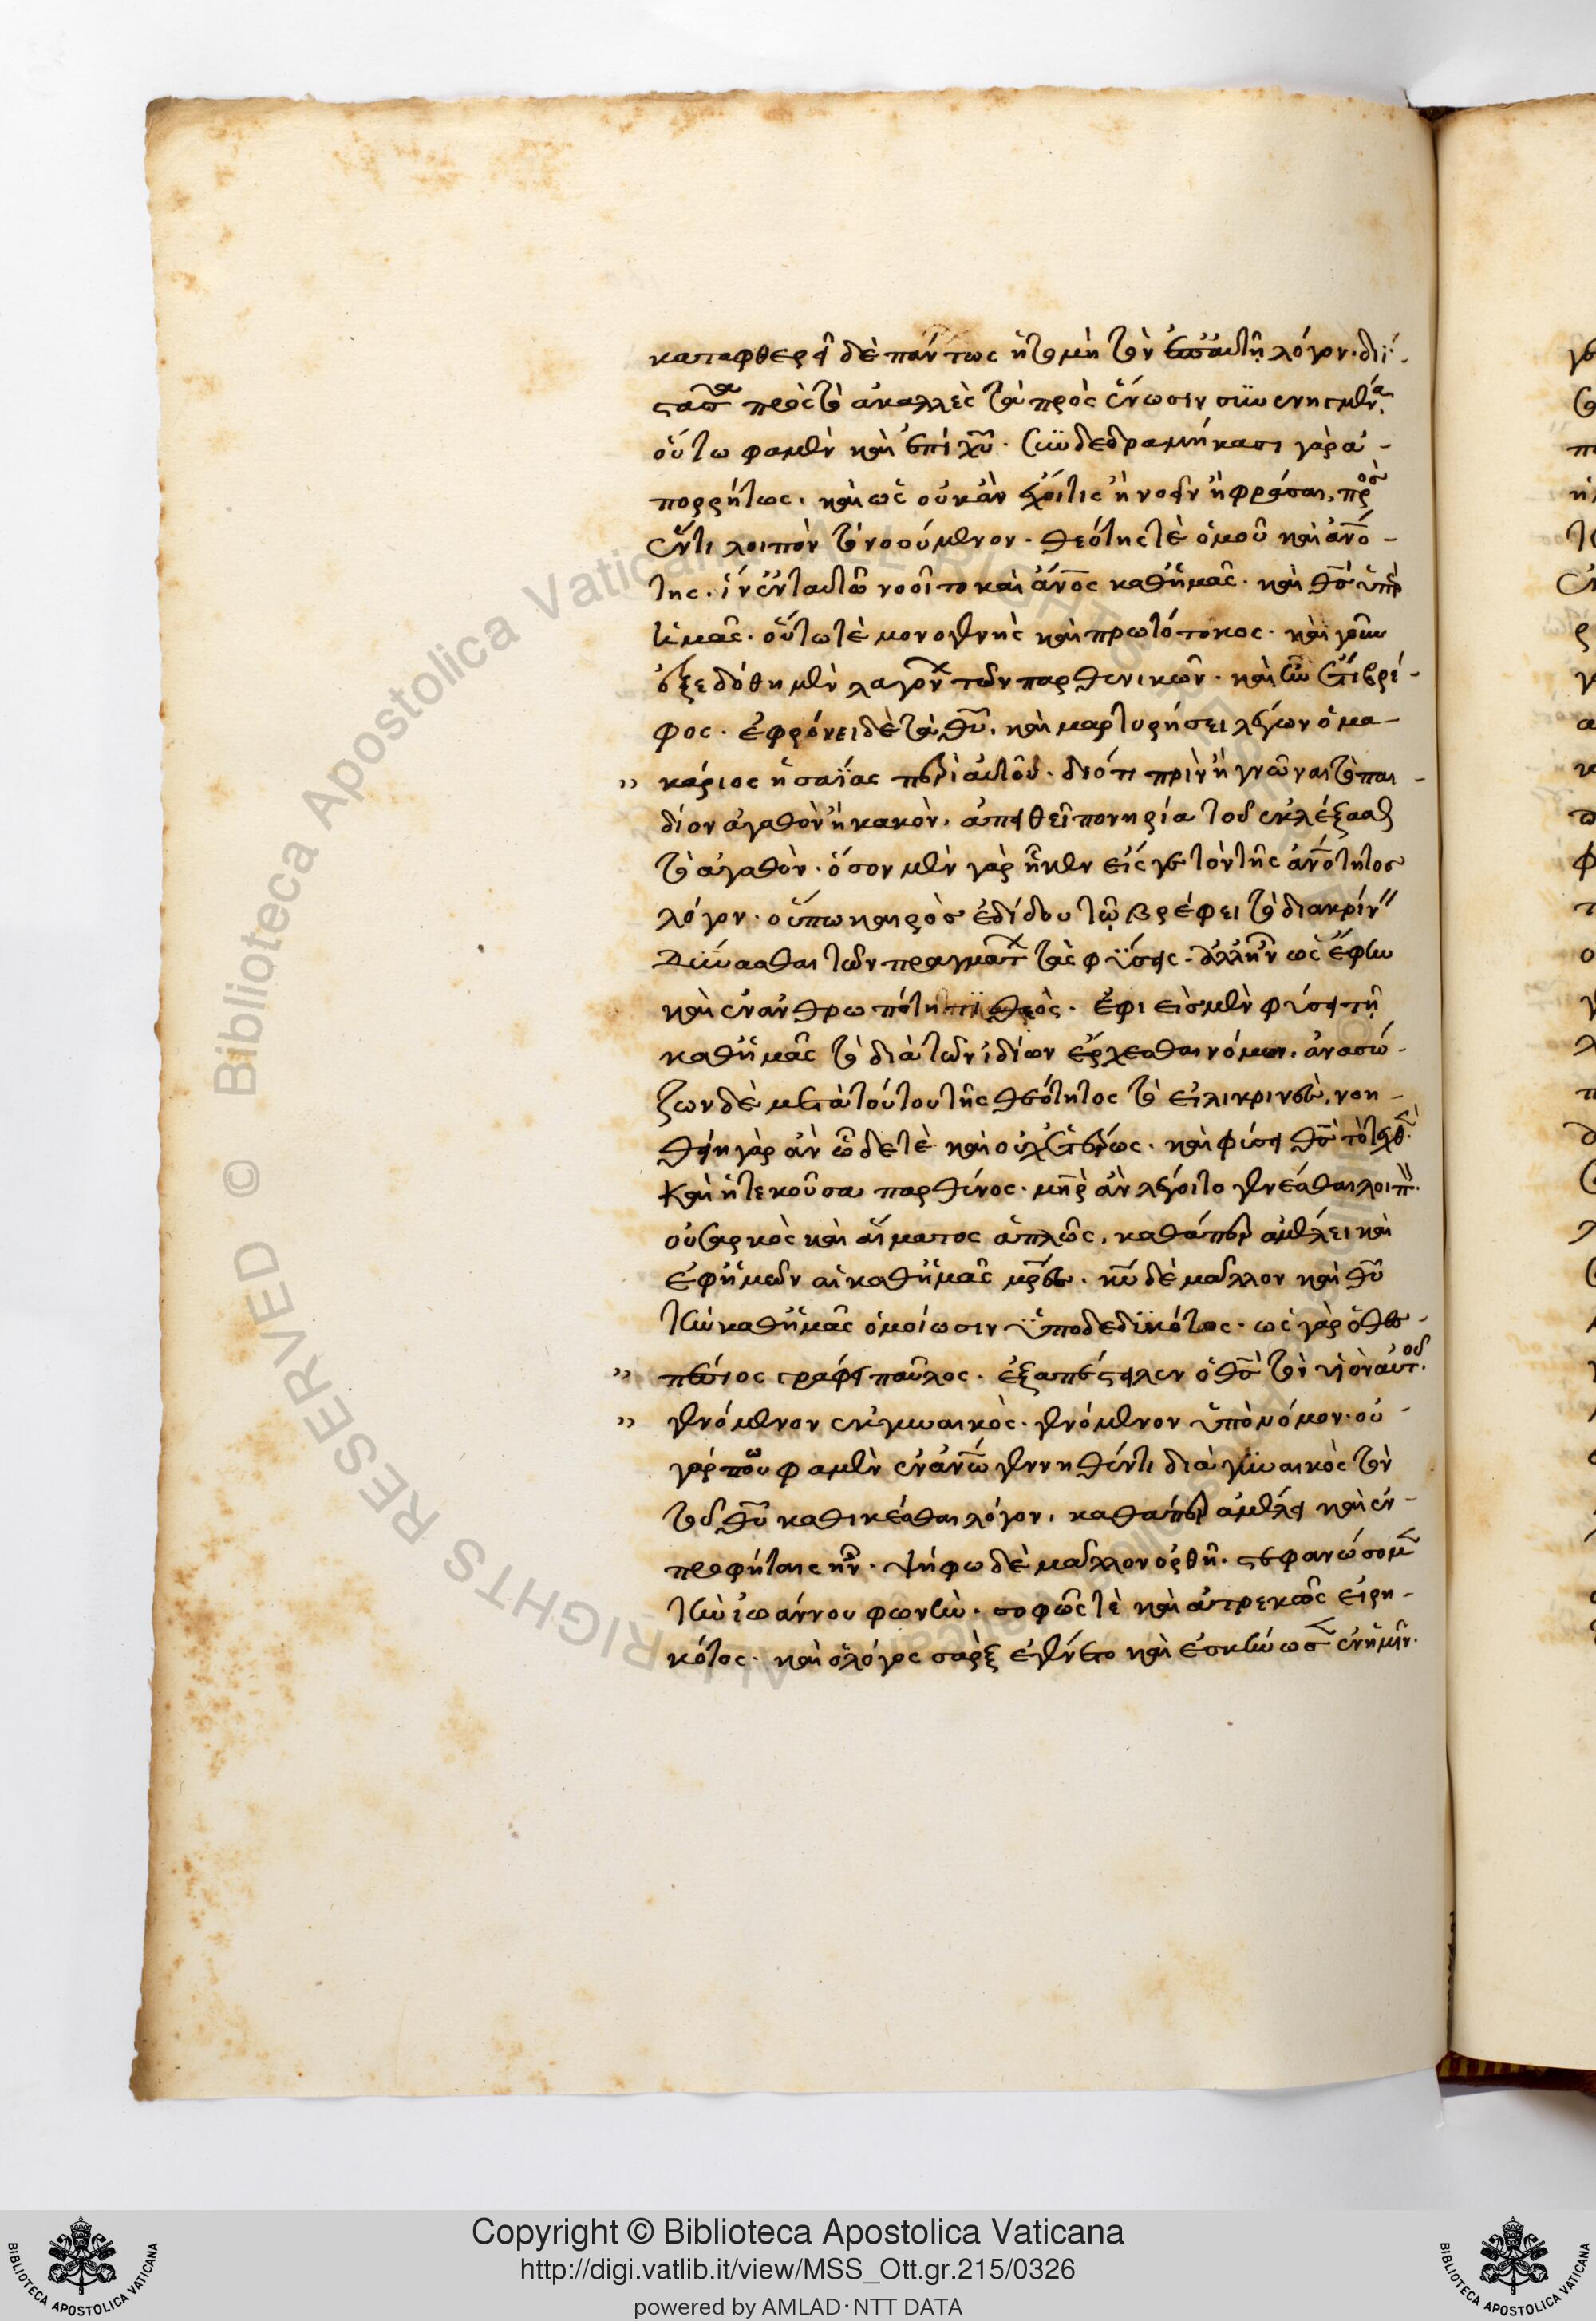 καταφθερεῖ δὲ πάντως ἥγε μὴ τὸν ἐπ' αὐτῇ λόγον· διϊ-
στᾶσα πρὸς τὸ ἀκαλλὲς τὰ πρὸς ἕνωσιν συνενηνεγμένα,
οὕτω φαμὲν καὶ ἐπὶ χυ̅· συνδεδραμήκασι γὰρ ἀ-
πορρήτως. καὶ ὡς οὐκ ἂν ἔχοι τις ἢ νοεῖν ἢ φράσαι, πρὸς
ἕν τι λοιπὸν τὸ νοούμενον· θεότης τὲ ὁμοῦ καὶ ἀνό-
της. ἵν' ἐν ταὐτῶ νοοῖτο καὶ ἄνος καθ' ἡμᾶς· καὶ θς ὑπὲρ
ἡμᾶς· οὕτω τὲ μονογενὴς καὶ πρωτότοκος· καὶ γοῦν
ἐξεδόθη μὲν λαγόνων τῶν παρθενικῶν· καὶ ἦν ἔτι βρέ-
φος· ἐφρόνει δὲ τὰ θυ̅. καὶ μαρτυρήσει λέγων ὁ μα-
" κάριος ἡσαΐας περὶ αὐτοῦ· διότι πρὶν ἢ γνῶναι τὸ παι-
δίον ἀγαθὸν ἢ κακὸν, ἀπειθεῖ πονηρία τοῦ ἐκλέξασθαι
τὸ ἀγαθὸν· ὅσον μὲν γὰρ ἧκεν εἴς γε τὸν τῆς ἀνότητος
λόγον· οὔπω καιρὸς ἐδίδου τῷ βρέφει τὸ διακρίνειν
δύνασθαι τῶν πραγμάτων τὰς φύσεις· ἀλλ' ἦν ὡς ἔφην
καὶ ἐν ἀνθρωπότητι θεὸς· ἐφιεὶς μὲν φύσει τῇ
καθ' ἡμᾶς τὸ διὰ τῶν ἰδίων ἔρχεσθαι νόμων. ἀνασώ-
ζων δὲ μετὰ τούτου τῆς θεότητος τὸ εἰλικρινὲς, νοη-
θείη γὰρ ἂν ὧδε τὲ καὶ οὐχ ἑτέρως· καὶ φύσει θς τὸ τεχθέν·
Καὶ ἡ τεκοῦσα παρθένος· μηρ ἂν λέγοιτο γενέσθαι λοιπὸν·
οὐ σαρκὸς καὶ αἵματος ἁπλῶς, καθάπερ ἀμέλει καὶ
ἐφ' ἡμῶν αἱ καθ' ἡμᾶς μρες· κυ̅ δὲ μᾶλλον καὶ θυ̅
τὴν καθ' ἡμᾶς ὁμοίωσιν ὑποδεδυκότος· ὡς γὰρ ὁ θε-
" σπέσιος γράφει παῦλος· ἐξαπέστειλεν ὁ θς τὸν υἱὸν αὐτοῦ·
" γενόμενον ἐκ γυναικὸς· γενόμενον ὑπὸ νόμον· οὐ
γάρ που φαμὲν ἐν ἀνω γεννηθέντι διὰ γυναικὸς τὸν
τοῦ θυ̅ καθικέσθαι λόγον, καθάπερ ἀμέλει καὶ ἐν
προφήταις ἦν· ψήφω δὲ μᾶλλον ὀρθῇ· στεφανώσομεν
τὴν ἰωάννου φωνὴν· σοφῶς τὲ καὶ ἀτρεκῶς εἰρη-
κότος· καὶ ὁ λόγος σὰρξ ἐγένετο καὶ ἐσκήνωσεν ἐν ἡμῖν·
Copyright © Biblioteca Apostolica Vaticana
http://digi.vatlib.it/view/MSS_Ott.gr.215/0326
powered by AMLAD·NTT DATA